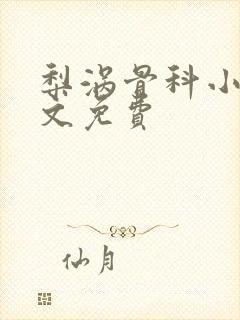 梨涡骨科小
文免費
仙月